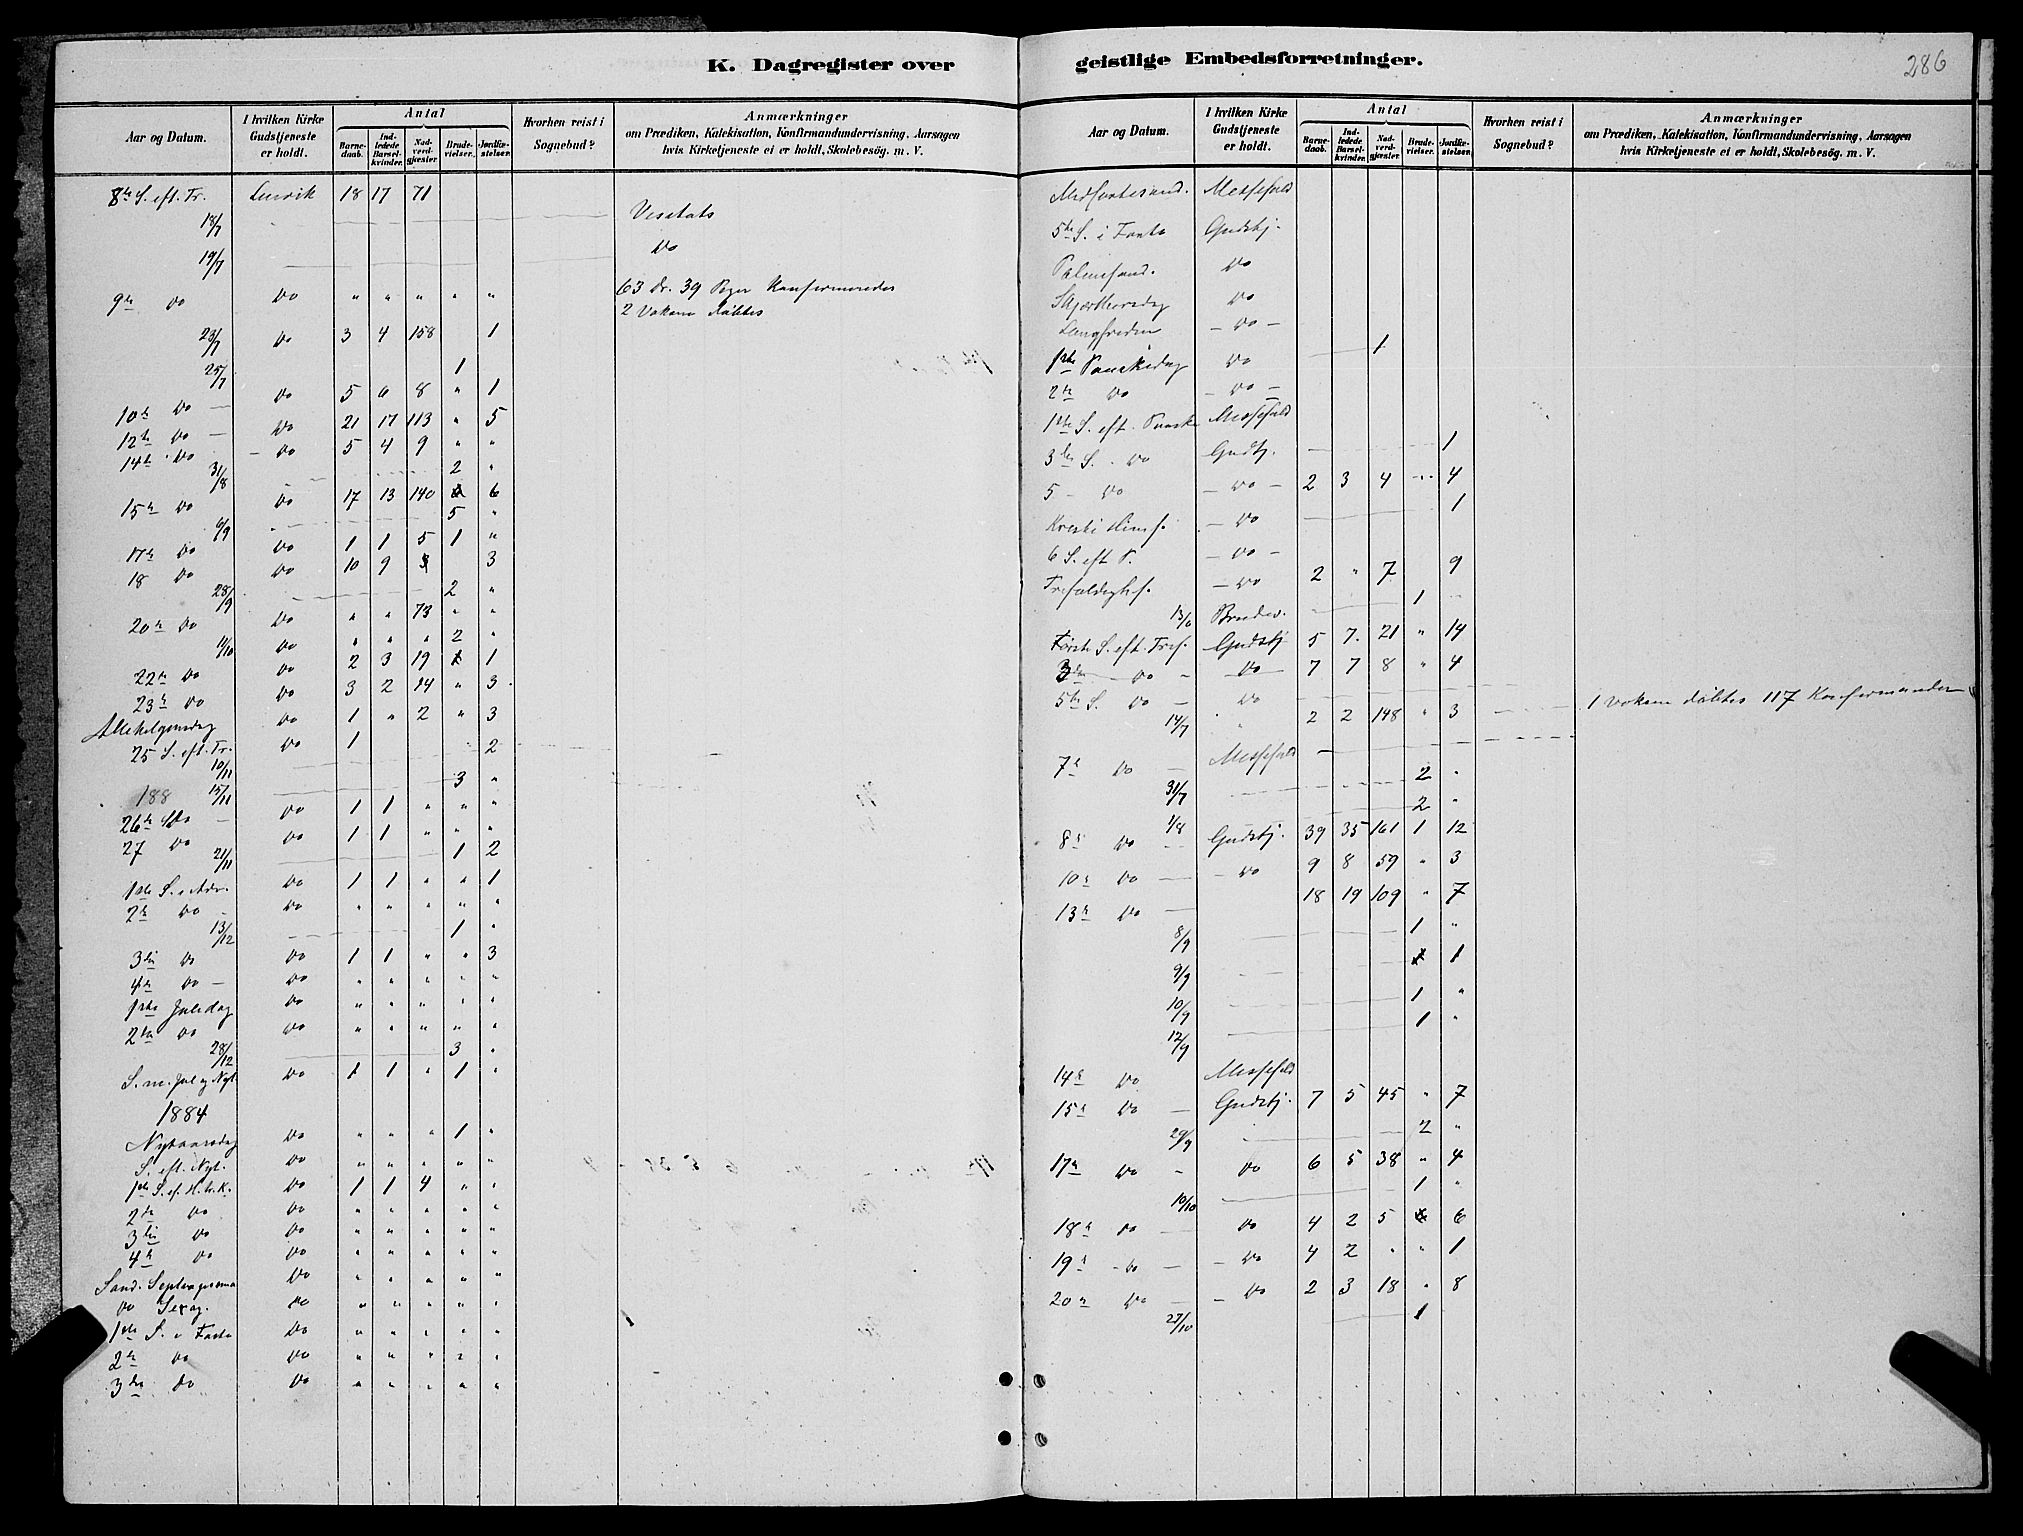 K. Dagregister over
Aar og Datum.
I hvilken Kirke Gudstjeneste er holdt.
Antal
Barnedaab.
Indledede Barselkvinder.
Nadverdgjester.
Brudevielser.
Jordfæstelser.
Hvorhen reist i Sognebud?
Anmærkninger
om Prædiken, Katekisation, Konfirmandundervisning, Aarsagen
hvis Kirketjeneste ei er holdt, Skolebesög. m. V.
8de S. eft. Tr. 18 17 71
18/7 Visitats
19/7 Do
9de Do Do " " " " " 63 Dr. 39 Piger Konfirmeredes
2 Voksne døbtes
23/7 Do 3 4 158 1
25/7 1
10de Do — Do 5 6 8 " 1
12te Do — Do 21 17 113 " 5
14de Do — Do 5 4 9 " "
31/8 2 "
15de Do Do 17 13 140 6
6/9 5 "
17de Do Do 1 1 5 1 "
18 Do Do 10 9 3
28/9 2 "
20de Do Do " " 73 " "
11/10 Do " " " 2 "
22de Do Do 2 3 19 1
23de Do Do 3 2 14 " 3
Allehelgensdag Do 1 " 2 " 3
25 S. eft. Tr. Do 1 2
10/11
188 15/11 3 "
26de Do — Do 1 1 " " "
27 Do Do 1 1 " " "
21/11 1 2
1ste S. i Adv. Do 1 1 " " 1
2de Do — Do " " " " "
13/12 1 "
3die Do Do 1 1 " " 3
4de Do — Do " " " " "
1ste Juledag Do " " " " "
2den Do Do " " " " "
28/12 3 "
S. m. Jul og Nyt. Do 1 1 " 1 "
1884
Nytaarsdag Do " " " 1 "
S. eft. Nyt. Do " " " " "
1ste S. ef. H. tr. K. Do 1 1 4 " "
2den Do Do " " " " "
3die Do Do " " " " "
4de Do Do " " " " "
Sønd. Septuagesima Do " " " " "
Do Sexag. Do " " " " "
1ste S. i Faste Do " " " " "
2de Do Do " " " " "
3die Do Do " " " " "
geistlige Embedsforretninger.
286
Aar og Datum.
I hvilken Kirke Gudstjeneste er holdt.
Antal
Barnedaab.
Indledede Barselkvinder.
Nadverdgjester.
Brudevielser.
Jordfæstelser.
Hvorhen reist i Sognebud?
Anmærkninger
om Prædiken, Katekisation, Konfirmandundervisning, Aarsagen
hvis Kirketjeneste ei er holdt, Skolebesög. m. V.
Midfastesønd. Messefald
5te S. i Faste Gudstj.
Palmesønd. Do
Skjærthorsdag Do
Langfredag — Do —
1ste Paaskedag Do 1
2de Do — Do —
1ste S. eft. Paaske Messefald
3die S. Do Gudtj. 1
5 — Do — Do — 2 3 4 " 4
Kristi Himf. — Do 1
6 S. eft P. — Do —
Trefoldighf. — Do 2 " 7 9
13/6 Brudev. 1
Første S. eft. Tref. Gudstj 5 7 21 " 14
3die Do — Do — 7 7 8 " 4
5te S. Do — Do 1 voksen døbtes 117 Konfirmander
14/7 " 2 2 148 " 3
7de Do — Messefald —
31/7 2 "
1/8 2 "
8de Do — Gudstj. 39 35 161 1 12
10de Do — — Do 9 8 59 " 3
13de Do — 18 19 109 " 7
8/9 1 "
9/9 1
10/9 1 "
12/9 1 "
14de Do Messefald
15de Do — Gudstj. 7 5 45 " 7
29/9 2 "
17de Do — Do 6 5 38 " 4
10/10 1 "
18de Do — Do 4 2 5 6
19de — Do — — Do 4 2 " " 1
20de Do — — Do 2 3 18 " 8
27/10 1